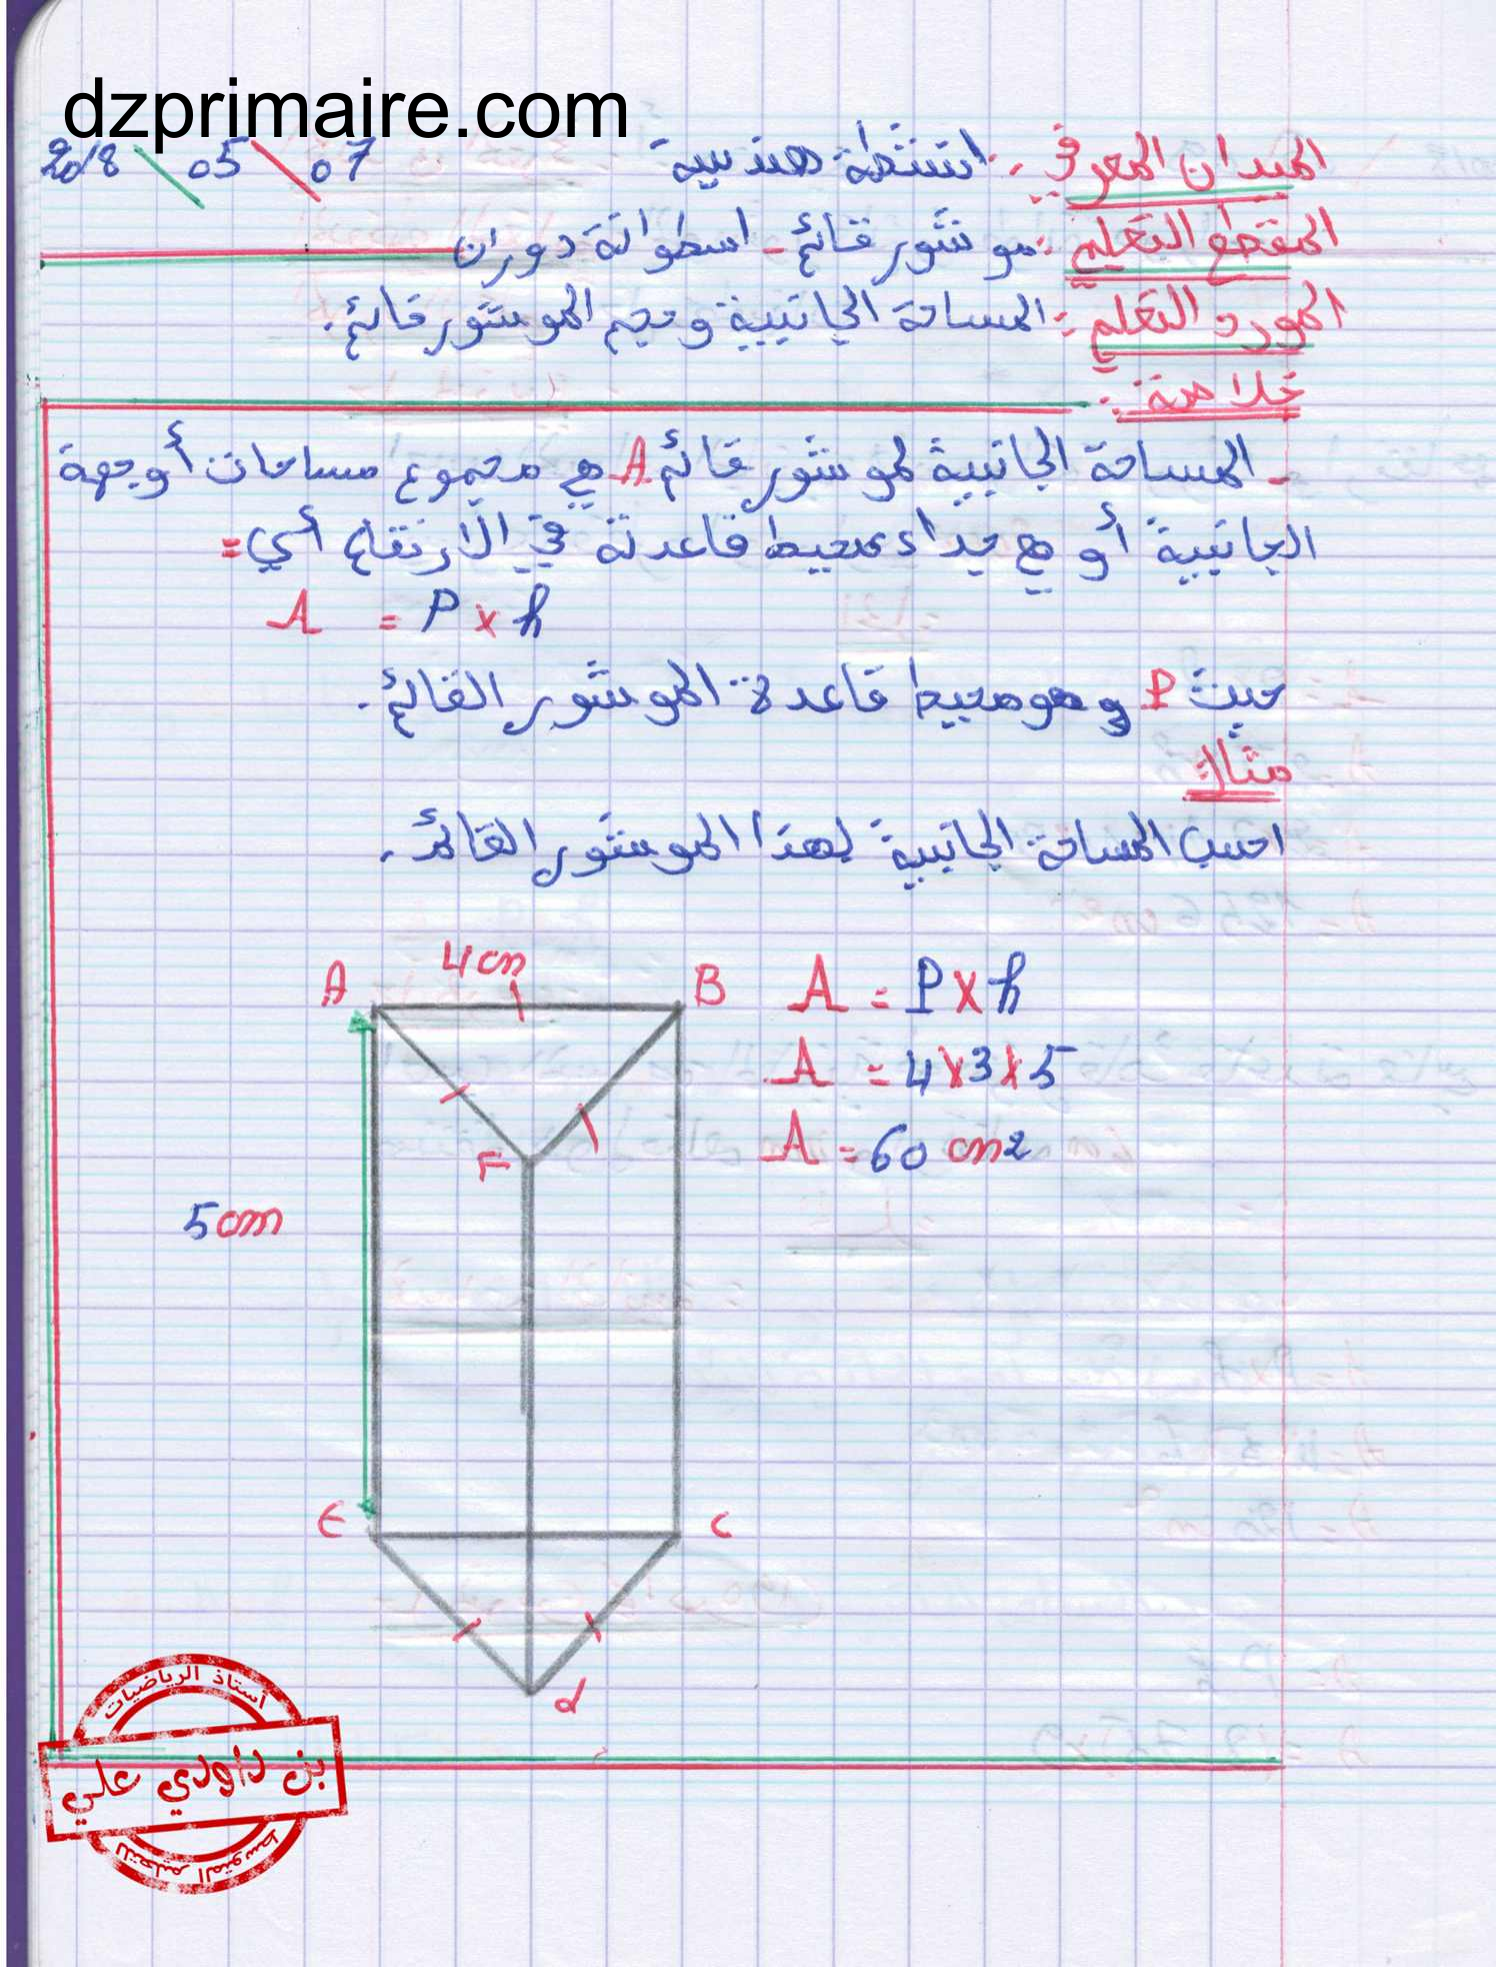 dzprimaire.com
الميدان المعرفي: انشطة هندسية 07 \ 05 \ 2018
المقطع التعلمي: موشور قائم - اسطوانة دوران
المورد التعلمي: المساحة الجانبية وحجم الموشور قائم.
خلاصة:
- المساحة الجانبية لموشور قائم A هي مجموع مساحات أوجهة
الجانبية أو هي جداء محيط قاعدته في الارتفاع أي =
A = P x h
حيث P وهو محيط قاعدة الموشور القائم.
مثال:
احسب المساحة الجانبية لهذا الموشور القائم.
A 4cm B A = P x h
A = 4 x 3 x 5
A = 60 cm2
F
5cm
E C
d
أستاذ الرياضيات
بن داودي علي
للتعليم المتوسط